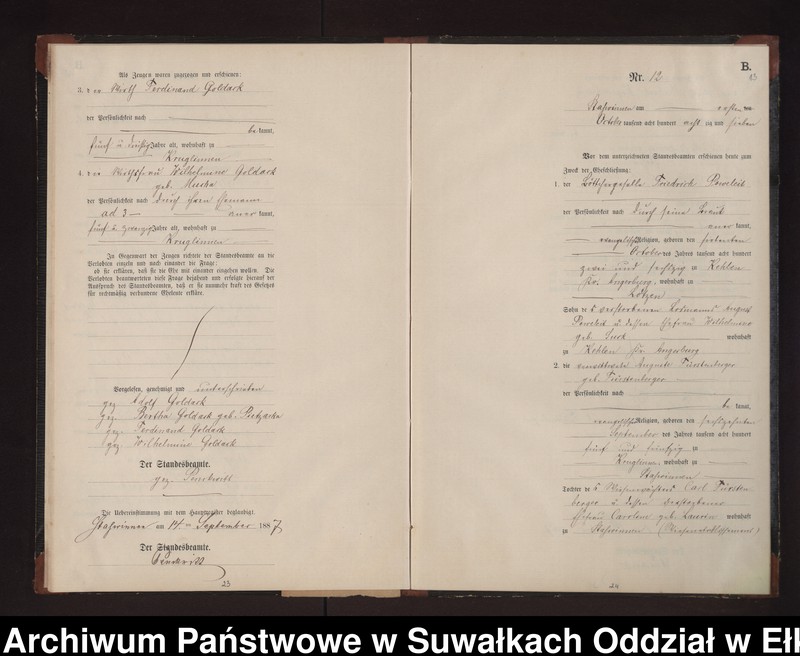 Als Zeugen waren zugezogen und erschienen:
3. der Wirth Ferdinand Goldack
der Persönlichkeit nach
be kannt,
fünf u dreißig Jahre alt, wohnhaft zu
Kruglinnen
4. die Wilhelmine Goldack
geb.
der Persönlichkeit nach durch ihren Ehemann
ad 3 aner kannt,
fünf u zwanzig Jahre alt, wohnhaft zu
Kruglinnen
In Gegenwart der Zeugen richtete der Standesbeamte an die
Verlobten einzeln und nach einander die Frage:
ob sie erklären, daß sie die Ehe mit einander eingehen wollen. Die
Verlobten beantworteten diese Frage bejahend und erfolgte hierauf der
Ausspruch des Standesbeamten, daß er sie nunmehr kraft des Gesetzes
für rechtmäßig verbundene Eheleute erkläre.
Vorgelesen, genehmigt und unterschrieben
gez Adolf Goldack
gez. Bertha Goldack geb.
gez. Ferdinand Goldack
gez. Wilhelmine Goldack
Der Standesbeamte.
gez.
Die Uebereinstimmung mit dem Hauptregister beglaubigt.
am 14ten September 1887
Der Standesbeamte.
23
B.
Nr. 12
13
am
October tausend acht hundert acht zig und sieben
Vor dem unterzeichneten Standesbeamten erschienen heute zum
Zweck der Eheschließung:
1. der Böttchergeselle Friedrich Powoleit
der Persönlichkeit nach durch seine Braut
aner kannt,
evangelischer Religion, geboren den siebenten
October des Jahres tausend acht hundert
zwei und sechszig zu Kehlen
Kr. Angerburg, wohnhaft zu
Lötzen
Sohn des verstorbenen August
Powoleit u dessen Ehefrau Wilhelmine
geb. wohnhaft
zu Kehlen Kr. Angerburg
2. die verwittwete Auguste Fürstenberger
geb. Fürstenberger
der Persönlichkeit nach
be kannt,
evangelischer Religion, geboren den sechszehnten
September des Jahres tausend acht hundert
fünf und fünfzig zu
Kruglinnen, wohnhaft zu
Tochter des Carl Fürsten
berger u dessen verstorbenen
Ehefrau Caroline geb. wohnhaft
zu
24
Archiwum Państwowe w Suwałkach Oddział w Ełk